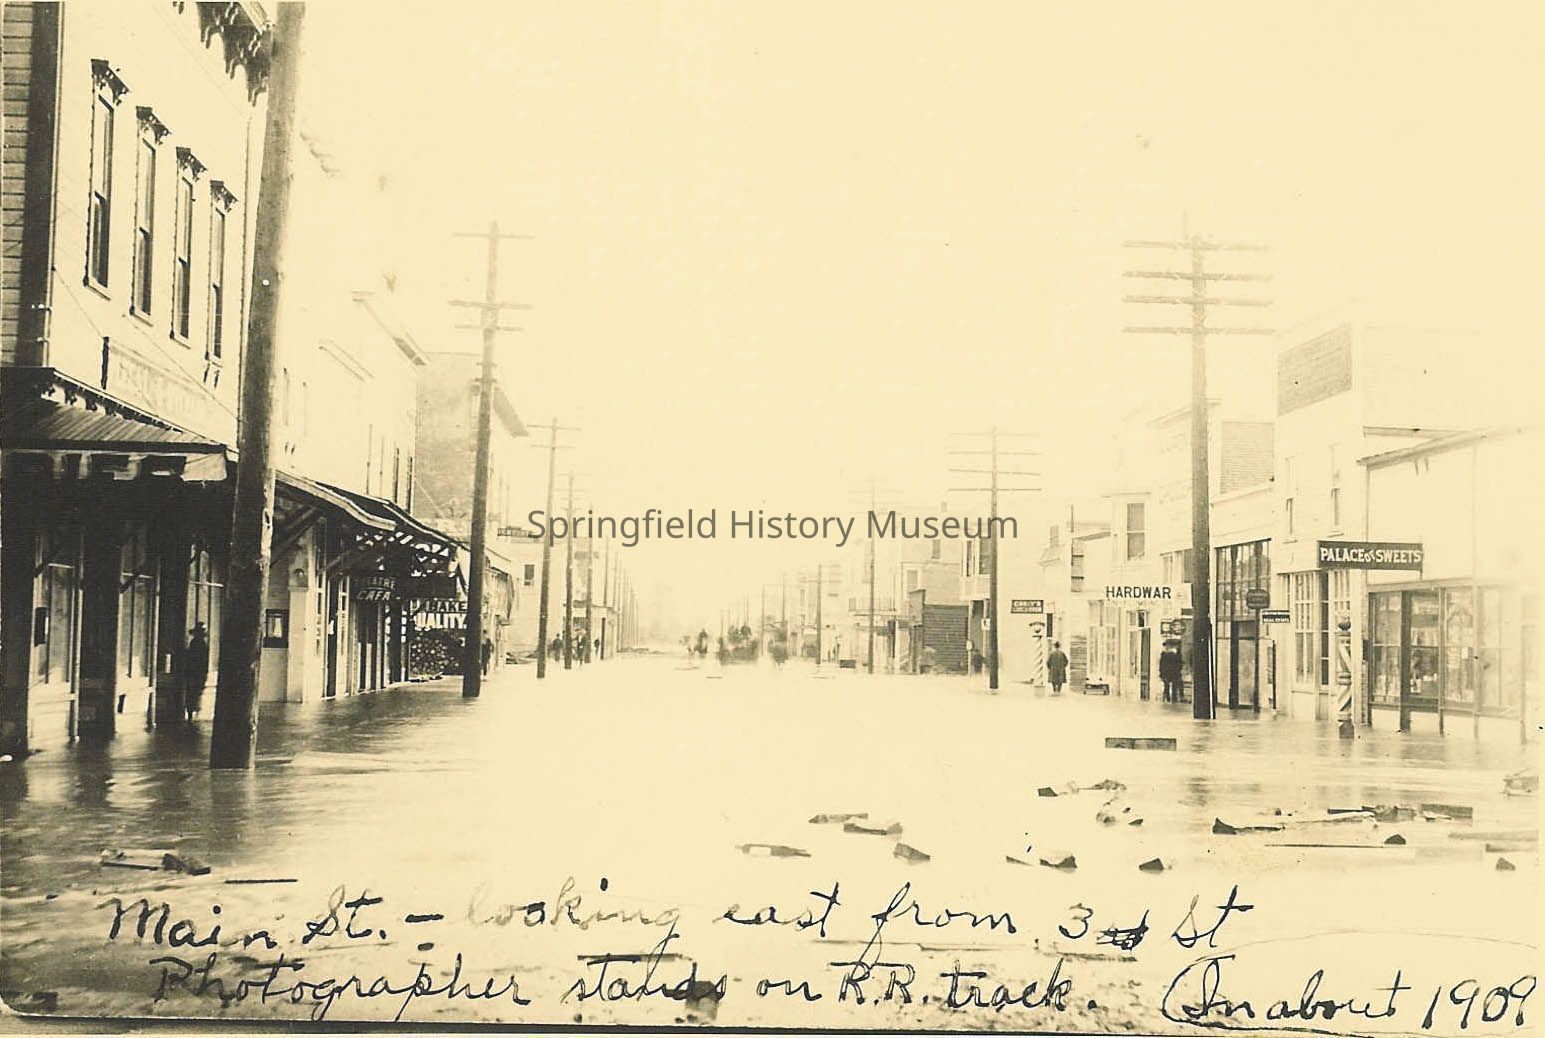 Springfield History Museum
THEATRE
CAFA
QUALITY
HARDWAR
PALACE OF SWEETS
Main St. - looking east from 3rd St
Photographer stands on R.R. track. (In about 1909